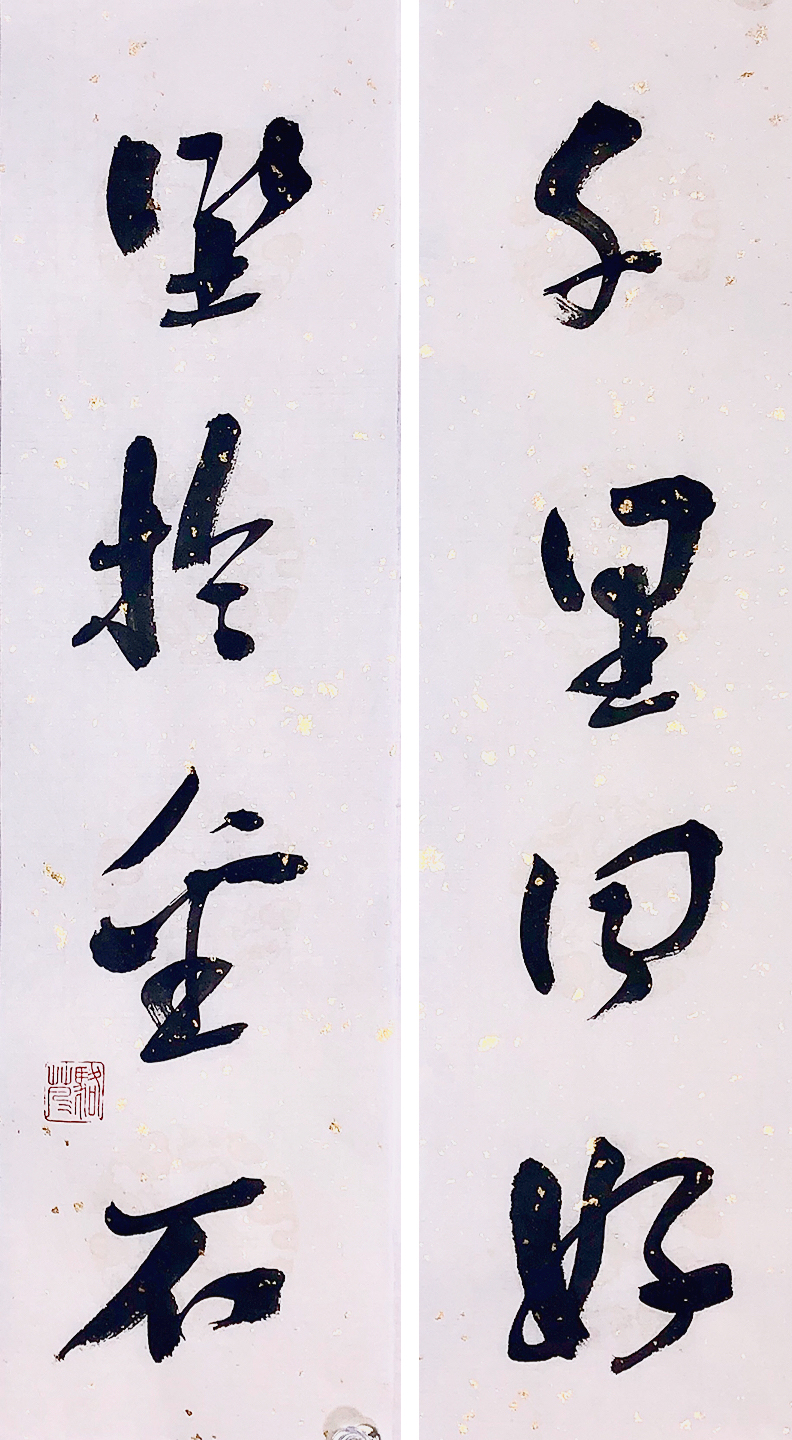 千里同好
坚于金石